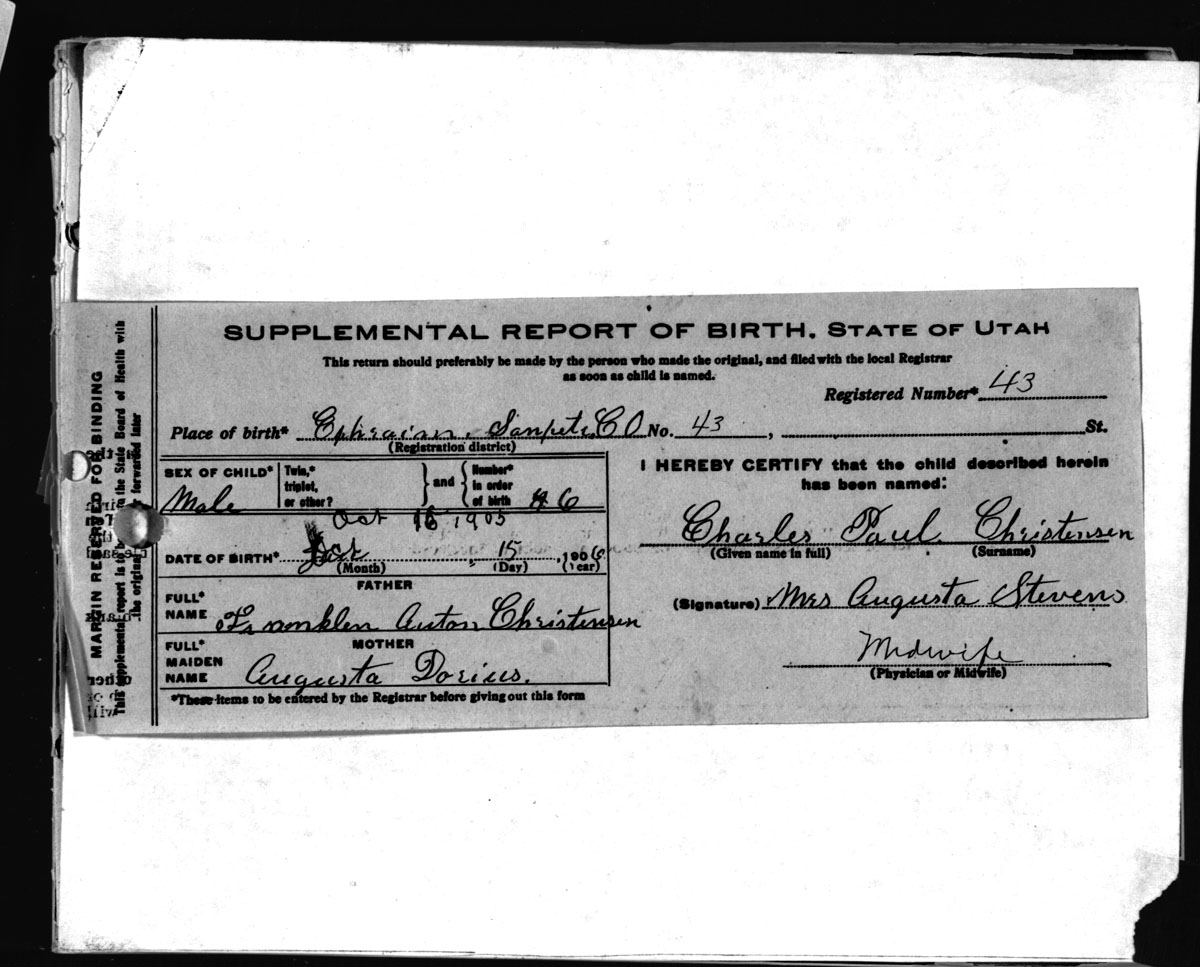 SUPPLEMENTAL REPORT OF BIRTH. STATE OF UTAH
This return should preferably be made by the person who made the original, and filed with the local Registrar
as soon as child is named.
Registered Number* 43
Place of birth* Ephraim, Sanpete, CO No. 43, St.
(Registration district)
SEX OF CHILD* Male
Twin,* triplet, or other? and Number* in order of birth 6
Oct 1905
DATE OF BIRTH* Oct 15, 1906
(Month) (Day) (Year)
FATHER
FULL* NAME Franklen Anton Christensen
MOTHER
FULL* MAIDEN NAME Augusta Dorius.
*These items to be entered by the Registrar before giving out this form
I HEREBY CERTIFY that the child described herein
has been named:
Charles Paul Christensen
(Given name in full) (Surname)
(Signature) Mrs Augusta Stevens
Midwife
(Physician or Midwife)
MARGIN RESERVED FOR BINDING
This supplemental report is to be the State Board of Health with
the original forwarded later